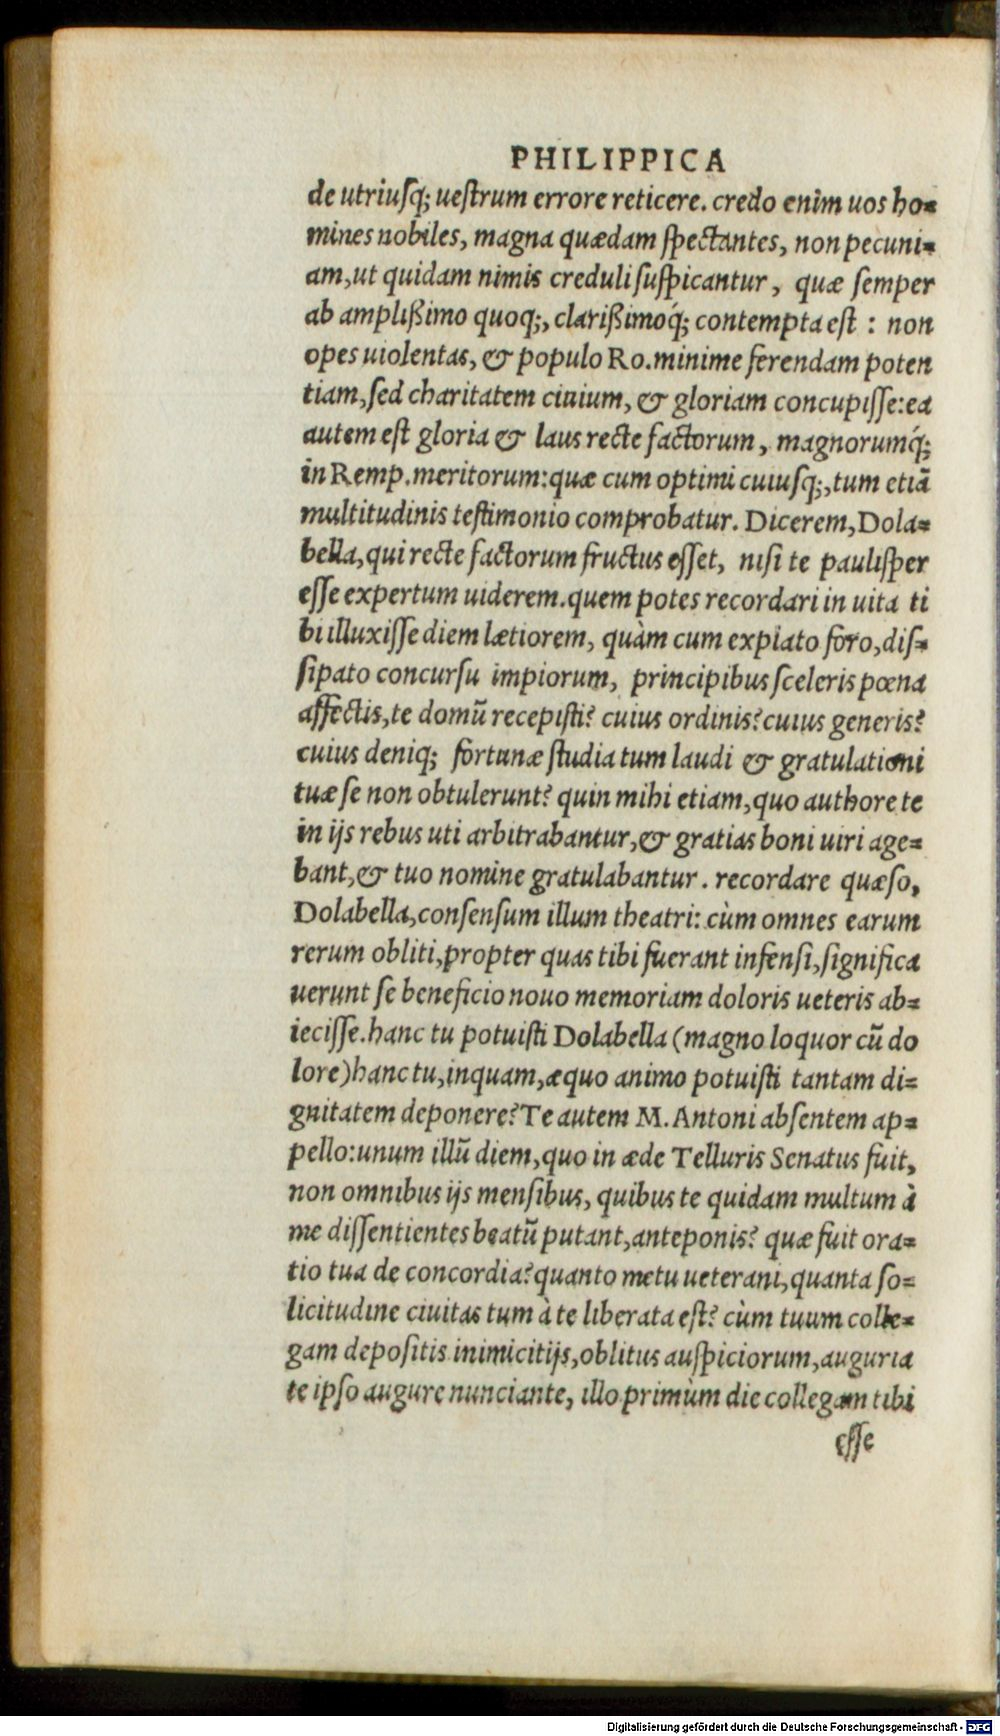 PHILIPPICA
de utriuſq; ueſtrum errore reticere. credo enim uos ho=
mines nobiles, magna quædam ſpectantes, non pecuni=
am, ut quidam nimis creduli ſuſpicantur, quæ ſemper
ab ampliſsimo quoq;, clariſsimoq́; contempta eſt : non
opes uiolentas, & populo Ro. minime ferendam poten
tiam, ſed charitatem ciuium, & gloriam concupiſſe: ea
autem eſt gloria & laus recte factorum, magnorumq́;
in Remp. meritorum: quæ cum optimi cuiuſq;, tum etiã
multitudinis teſtimonio comprobatur. Dicerem, Dola=
bella, qui recte factorum fructus eſſet, niſi te pauliſper
eſſe expertum uiderem. quem potes recordari in uita ti
bi illuxiſſe diem lætiorem, quàm cum expiato foro, diſ=
ſipato concurſu impiorum, principibus ſceleris pœna
affectis, te domũ recepiſti? cuius ordinis? cuius generis?
cuius deniq; fortunæ ſtudia tum laudi & gratulationi
tuæ ſe non obtulerunt? quin mihi etiam, quo authore te
in ijs rebus uti arbitrabantur, & gratias boni uiri age=
bant, & tuo nomine gratulabantur. recordare quæſo,
Dolabella, conſenſum illum theatri: cùm omnes earum
rerum obliti, propter quas tibi fuerant infenſi, ſignifica
uerunt ſe beneficio nouo memoriam doloris ueteris ab=
ieciſſe. hanc tu potuiſti Dolabella (magno loquor cũ do
lore) hanc tu, inquam, æquo animo potuiſti tantam di=
gnitatem deponere? Te autem M. Antoni abſentem ap=
pello: unum illũ diem, quo in æde Telluris Senatus fuit,
non omnibus ijs menſibus, quibus te quidam multum à
me diſſentientes beatũ putant, anteponis? quæ fuit ora=
tio tua de concordia? quanto metu ueterani, quanta ſo=
licitudine ciuitas tum à te liberata eſt? cùm tuum colle=
gam depoſitis inimicitijs, oblitus auſpiciorum, auguria
te ipſo augure nunciante, illo primùm die collegam tibi
eſſe
Digitalisierung gefördert durch die Deutsche Forschungsgemeinschaft - DFG